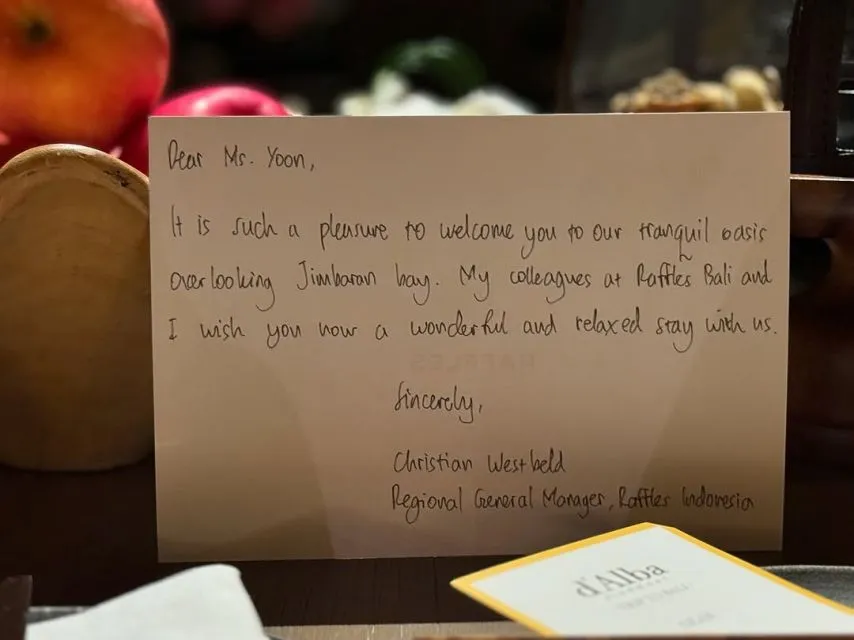 Dear Ms. Yoon,
It is such a pleasure to welcome you to our tranquil oasis
overlooking Jimbaran bay. My colleagues at Raffles Bali and
I wish you now a wonderful and relaxed stay with us.
Sincerely,
Christian Westbeld
Regional General Manager, Raffles Indonesia
d'Alba